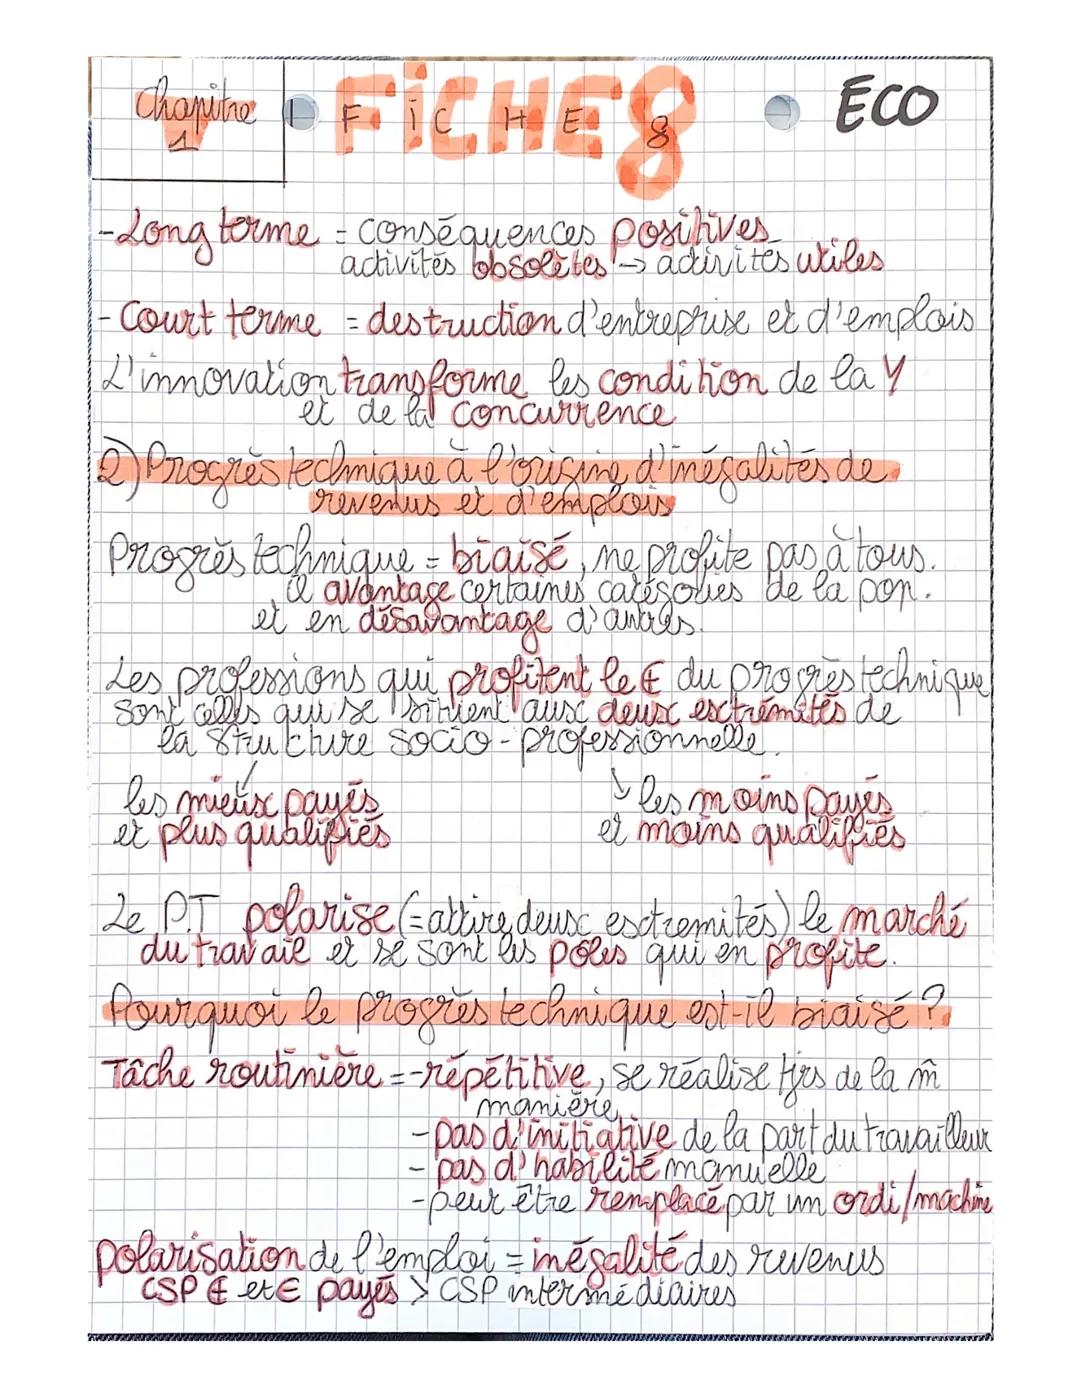 Chapitre
1
FiCHE 8
F i C H E 8
ECO
- Long terme = conséquences positives
activités obsolètes → activités utiles
- Court terme = destruction d'entreprise et d'emplois
L'innovation transforme les condition de la Y
et de la concurrence
2) Progrès technique à l'origine d'inégalités de
revenus et d'emplois
Progrès technique = biaisé, ne profite pas à tous.
il avantage certaines catégories de la pop.
et en désavantage d'autres.
Les professions qui profitent le € du progrès technique
sont celles qui se situent aux deux extrémités de
la structure socio-professionnelle.
les mieux payés
et plus qualifiés
↘ les moins payés
et moins qualifiés
Le P.T polarise (= attire deux extremités) le marché
du travail et se sont les pôles qui en profite.
Pourquoi le progrès technique est-il biaisé ?
Tâche routinière = - répétitive, se réalise tjrs de la m̂
manière
- pas d'initiative de la part du travailleur
- pas d'habilité manuelle
- peur être remplacé par un ordi/machine
polarisation de l'emploi = inégalité des revenus
CSP € et € payés > CSP intermédiaires